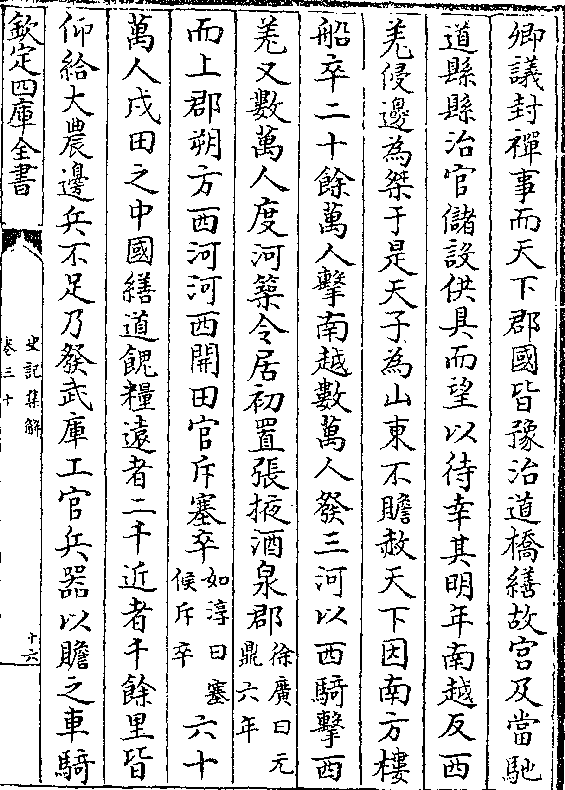 卿議封禪事而天下郡國皆豫治道橋繕故宫及當馳
道縣縣治官儲設供具而望以待幸其明年南越反西
羌侵邊為桀于是天子為山東不贍赦天下因南方樓
船卒二十餘萬人擊南越數萬人發三河以西騎擊西
羌又數萬人度河築令居初置張掖酒泉郡徐廣曰元鼎六年
而上郡朔方西河河西開田官斥塞卒如淳曰塞候斥卒六十
萬人戍田之中國繕道餽糧遠者二千近者千餘里皆
仰給大農邊兵不足乃發武庫工官兵器以贍之車騎
欽定四庫全書
史記集解
卷三十
十六